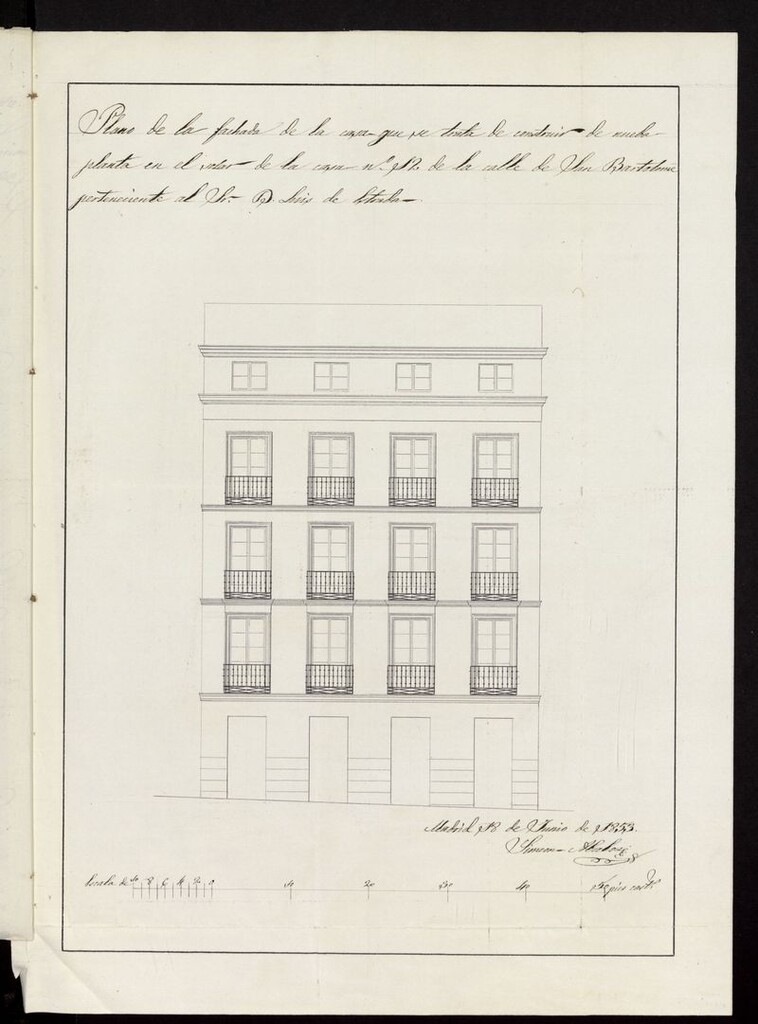 Plano de la fachada de la casa que se trata de construir de nueba
planta en el solar de la casa nº 12 de la calle de San Bartolomé
perteneciente al Sr. D. Luis de Estrada
Madrid 18 de Junio de 1853.
Simeon
Escala de 10 8 6 4 2 0 10 20 30 40 50 pies cast.s